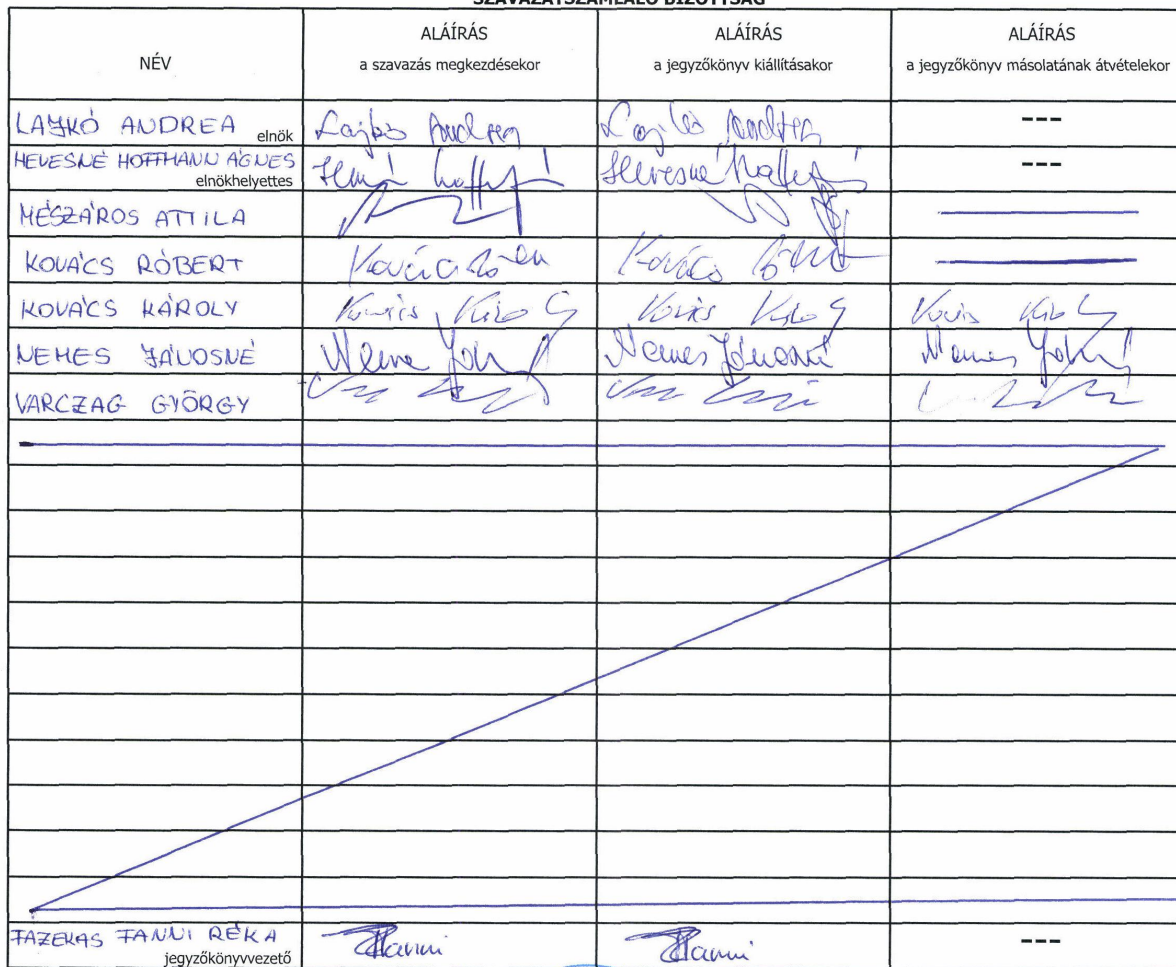 SZAVAZATSZÁMLÁLÓ BIZOTTSÁG
NÉV
ALÁÍRÁS
a szavazás megkezdésekor
ALÁÍRÁS
a jegyzőkönyv kiállításakor
ALÁÍRÁS
a jegyzőkönyv másolatának átvételekor
LAJKÓ ANDREA elnök Lajkó Andrea Lajkó Andrea ---
HEVESNÉ HOFFMANN ÁGNES
elnökhelyettes Hevesné ---
MÉSZÁROS ATTILA
KOVÁCS RÓBERT Kovács Kovács
KOVÁCS KÁROLY Kovács Károly Kovács Károly Kovács Károly
NEMES JÁNOSNÉ Nemes Nemes Jánosné Nemes
VARCZAG GYÖRGY
FAZEKAS FANNI RÉKA
jegyzőkönyvvezető Fanni Fanni ---